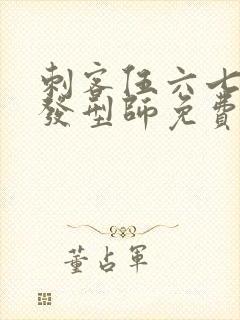 刺客伍六七
發型師免費
董占軍